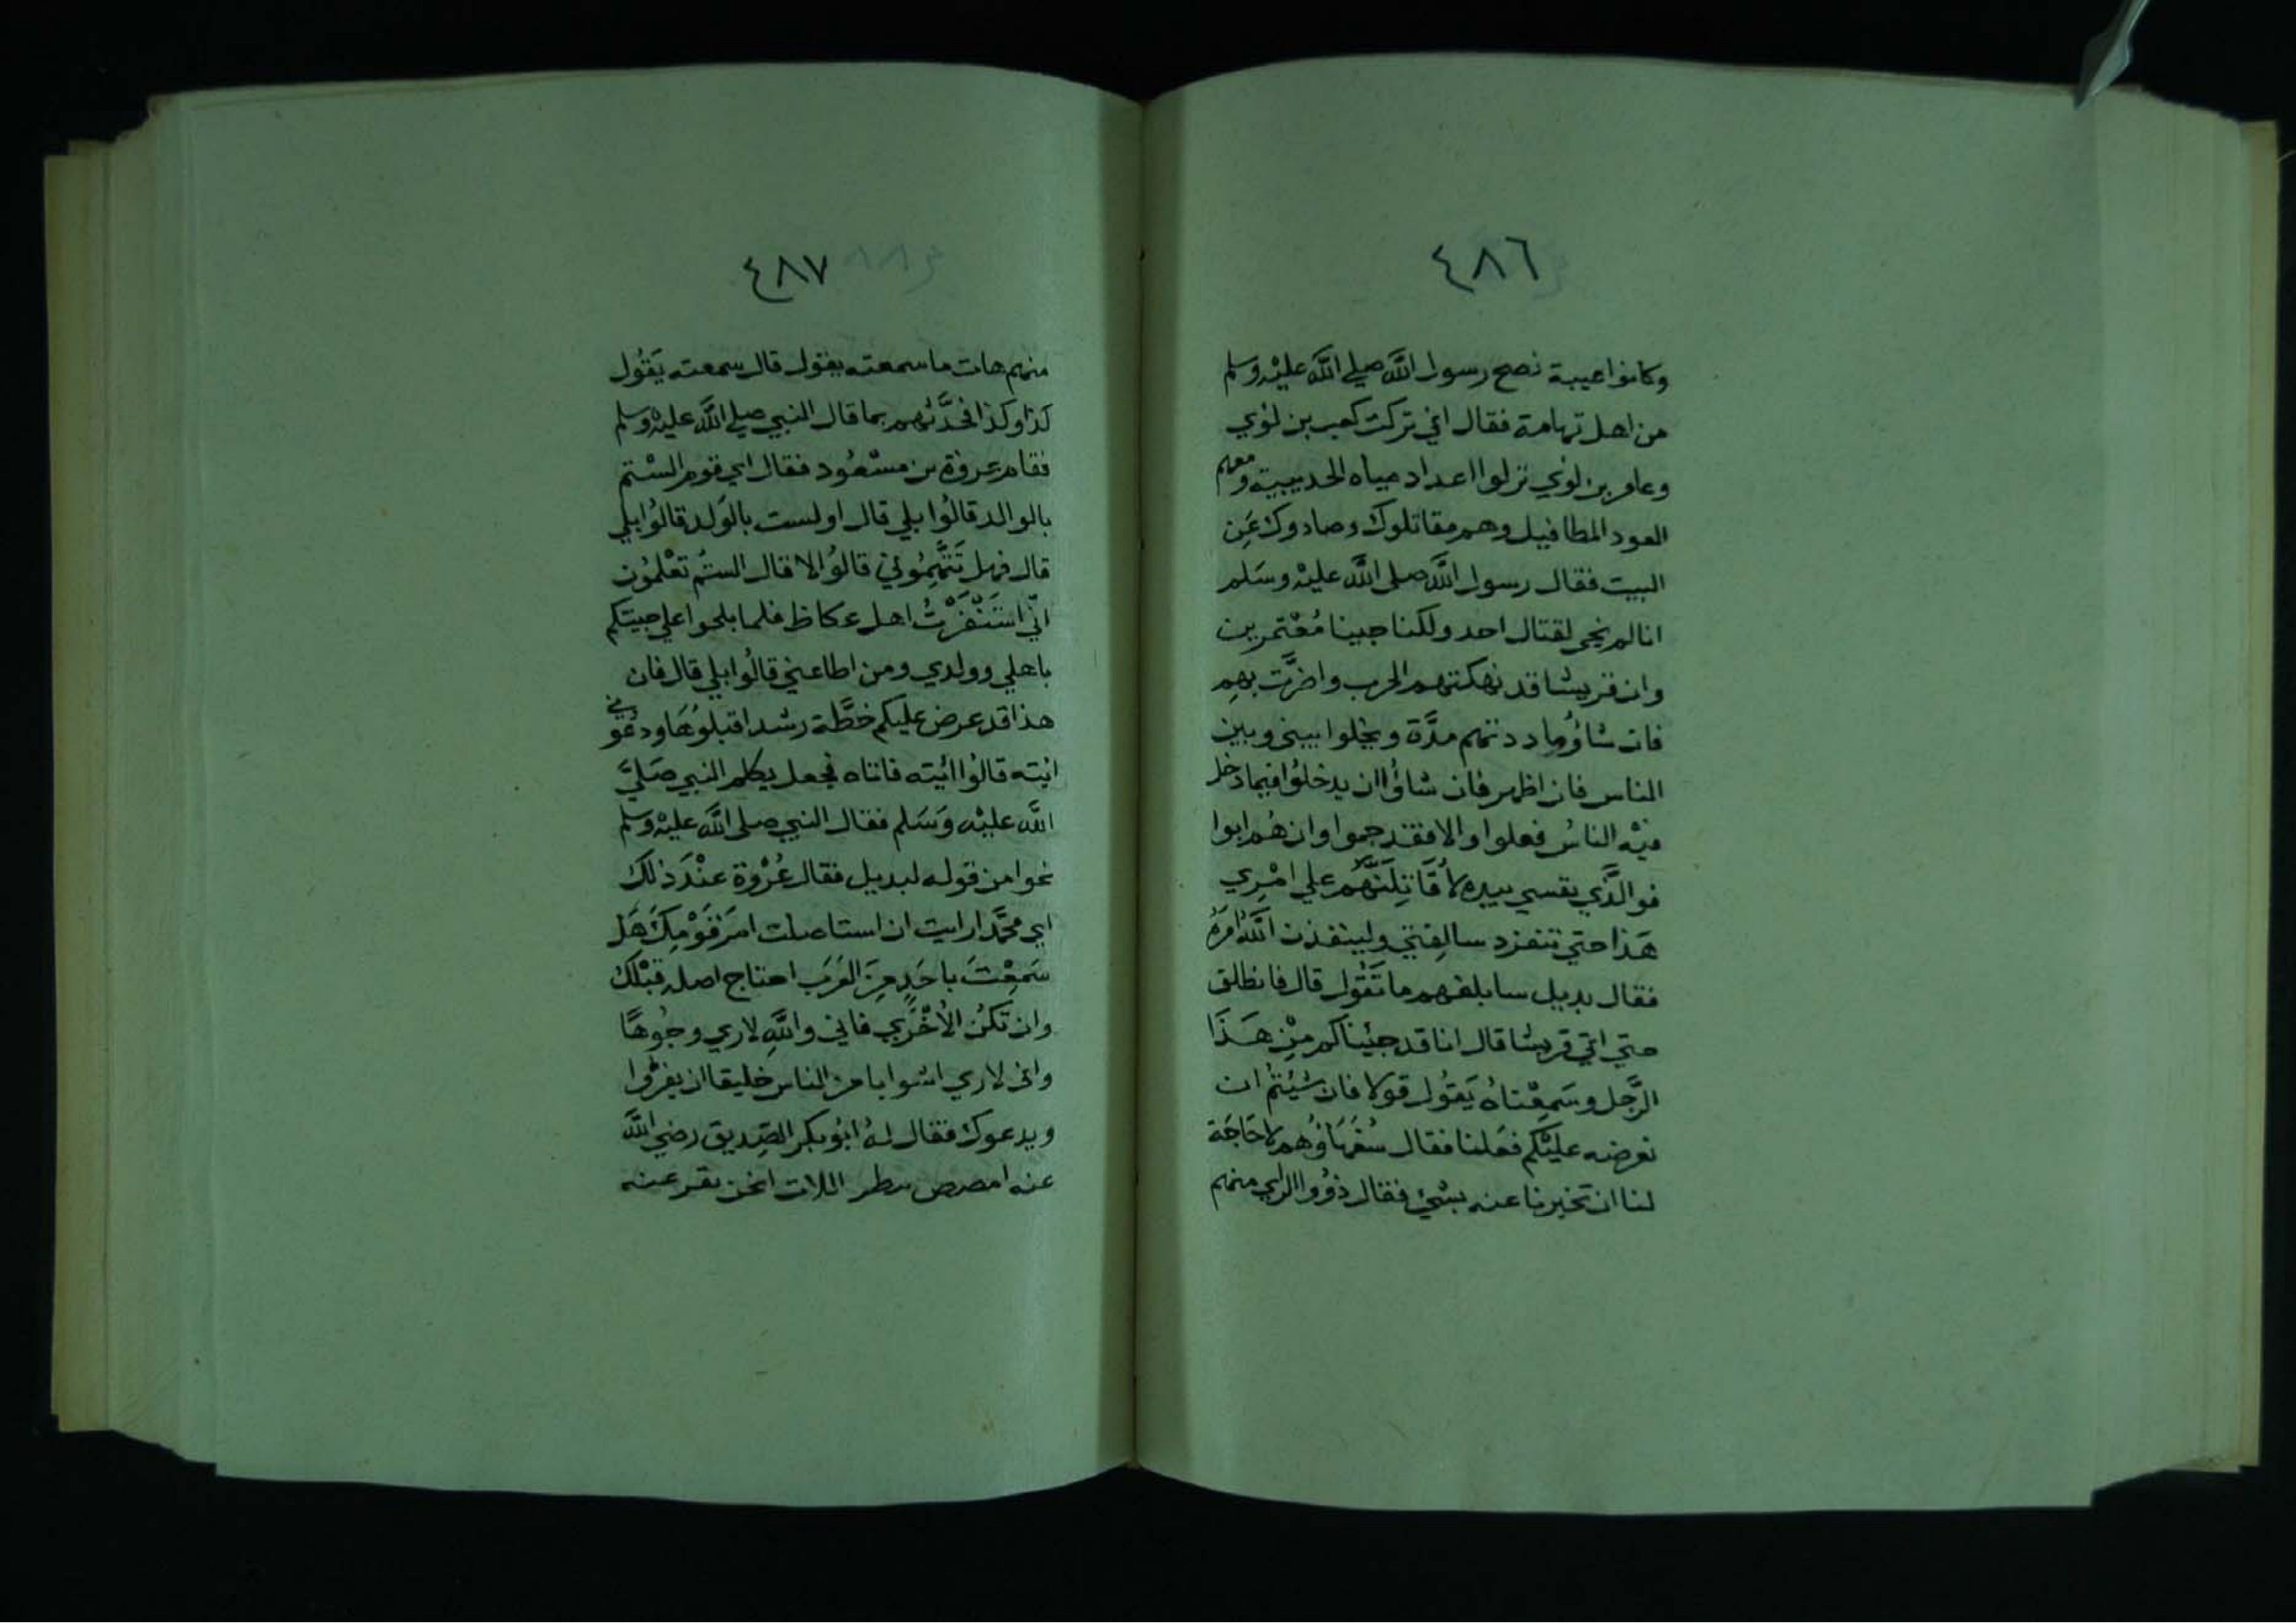 ٤٨٦
وكانوا عيبة نصح رسول الله صلي الله عليه وسلم
من اهل تهامة فقال اني تركت كعب بن لوي
وعامر بن لوي نزلوا اعداد مياه الحديبية ومعهم
العود المطافيل وهم مقاتلوك وصادوك عن
البيت فقال رسول الله صلى الله عليه وسَلم
انا لم نجي لقتال احد ولكنا جينا مُعْتمرين
وان قريشا قد نهكتهم الحرب واضرَّت بهم
فان شاؤُا ماددتهم مدَّة ويخلوا بيني وبين
الناس فان اظهر فان شاؤُا ان يدخلُوا فيما دخل
فيْه الناسُ فعلوا والا فقد جموا وان هُم ابوا
فوالَّذي نفسي بيده لاُقَاتِلَنَّهُم علي امْرِي
هَذا حتي تنفرد سالِفتي ولينفذن اللهُ امرَهُ
فقال بديل سابلغهم ما تَقُول قال فانطلق
حتي اتي قريشا قال انا قد جئيناكم مِنْ هَذَا
الرَّجل وسَمِعْناهُ يَقُول قولا فان شيئتُم ان
نعرضه عليْكم فعَلنا فقال سُفَهَاؤُهم لا حَاجَة
لنا ان تخبرنا عنه بشْيئ فقال ذوُوا الراي منهم
٤٨٧
منهم هات ما سمعته يقول قال سمعته يَقُول
كذا وكذا فحَدَّثهم بما قال النبي صلي الله عليه وسلم
فقام عروة بن مسْعُود فقال اي قوم السْتم
بالوالد قالُوا بلي قال اولست بالوَلد قالُوا بلي
قال فهل تَتَّهِمُوني قالُوا لا قال الستُم تعْلمُون
انّي اسْتَنْفَرْتُ اهل عكاظ فلما بلحوا علي جيتكم
باهلي وولدي ومن اطاعني قالُوا بلي قال فان
هذا قد عرض عليكم خطَّة رشد اقبلُوهَا ودعُوني
اتيته قالُوا ائيته فاتاه فجعل يكلم النبي صَليَّ
الله عليْه وَسَلم فقال النبي صلى الله عليْه وسلم
نحوا من قوله لبديل فقال عُرْوة عنْدَ ذلكَ
اي محَّمد ارايت ان استاصلت امرَ قوْمِكَ هَل
سَمِعْتَ باحَدٍ مِنَ العَرَب اجتاج اصله قبْلك
وان تكُن الاُخْرَي فاني والله لاري وجُوهًا
واني لاري اشوابا من الناس خليقا ان يفرُّوا
ويدعوك فقال لهُ ابُو بكر الصّديق رضي الله
عنه امصص بظر اللات انحن نفر عنه